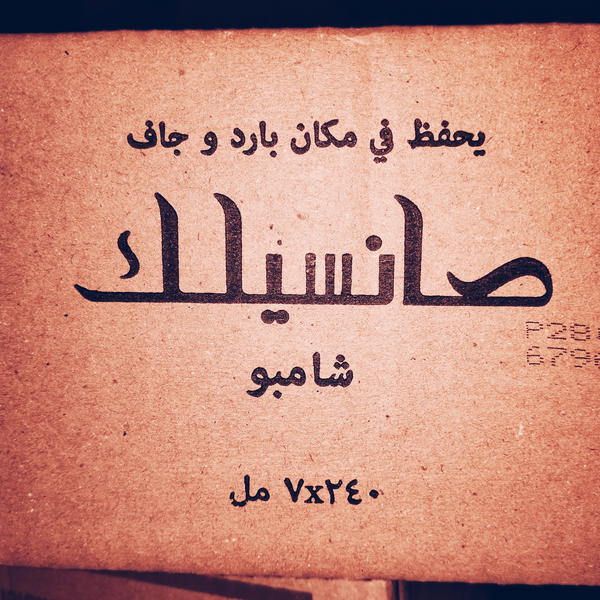 يحفظ في مكان بارد و جاف
صانسيلك
شامبو
٧x٢٤٠ مل